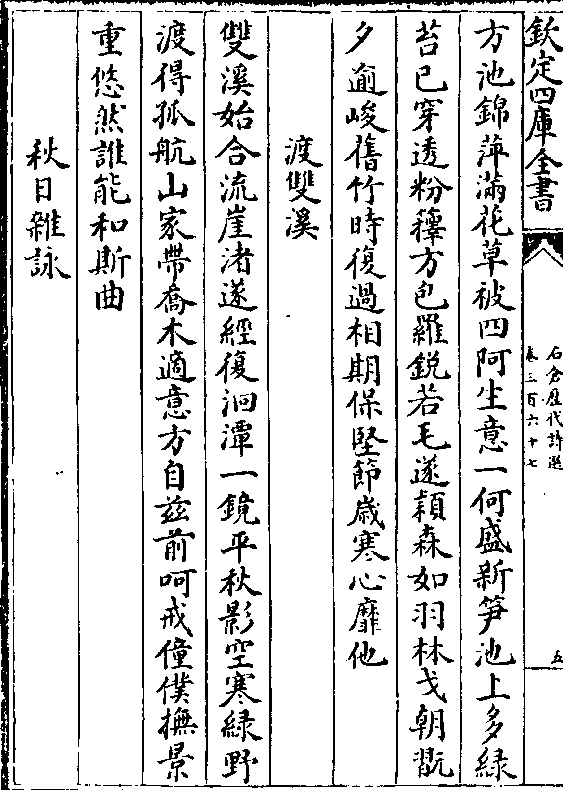 欽定四庫全書
石倉歴代詩選
卷三百六十七
五
方池錦萍滿花草被四阿生意一何盛新笋池上多綠
苔已穿透粉籜方包羅鋭若毛遂穎森如羽林戈朝翫
夕逾峻舊竹時復過相期保堅節歳寒心靡他
渡雙溪
雙溪始合流崖渚遂經復洄潭一鏡平秋影空寒緑野
渡得孤航山家帶喬木適意方自兹前呵戒僮僕撫景
重悠然誰能和斯曲
秋日雜詠